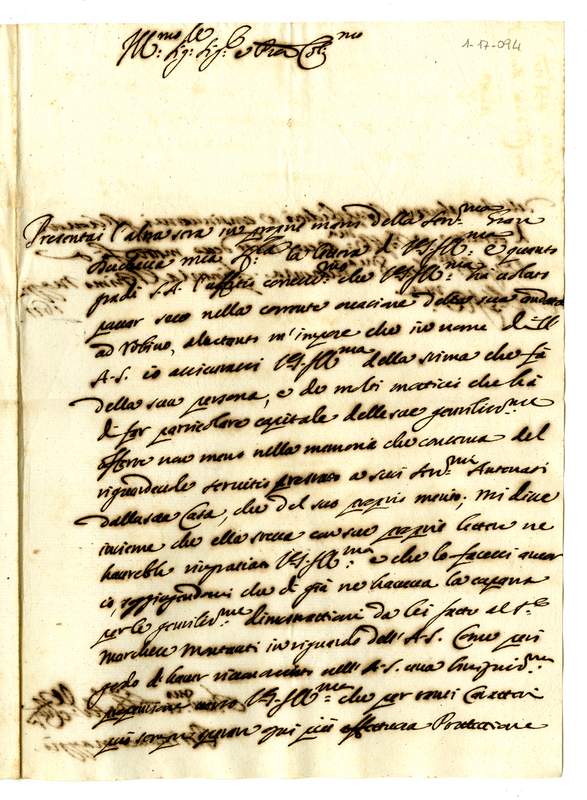 Ill:mo Sig: Sig:e e Pron Col:mo
1-17-094
Presentai l'altra sera in proprie mani della Ser:ma Gran
Duchessa mia Sig:ra la lettera di V.S. Ill:ma e quanto
gradì S.A. l'uffitio che V.S. Ill:ma ha
passar seco nella corrente occasione della sua andata
ad Urbino, altretanto m'impose che in nome dell'
A.S. io assicurassi V.S. Ill:ma della stima che fà
della sua persona, e de molti motivi che hà
di far particolare capitale delle sue gentiliss:me
offerte non meno nella memoria che conserva del
riguardevole servitio prestato a suoi Ser:mi Antenati
dalla sua Casa, che del suo proprio merito; mi disse
insieme che ella stessa con sue proprie lettere ne
haverebbe ringratiata V.S. Ill:ma e che lo facessi ancor
io, soggiugendomi che di già ne haveva la
per le gentiliss:me dimostrationi da lei fatte al S:r
Marchese Montauti in riguardo dell'A.S. Come poi
godo di haver riconosciuto nell'A.S. una
verso V.S. Ill:ma che per tanti Caratteri
più sempre qui più Protettione